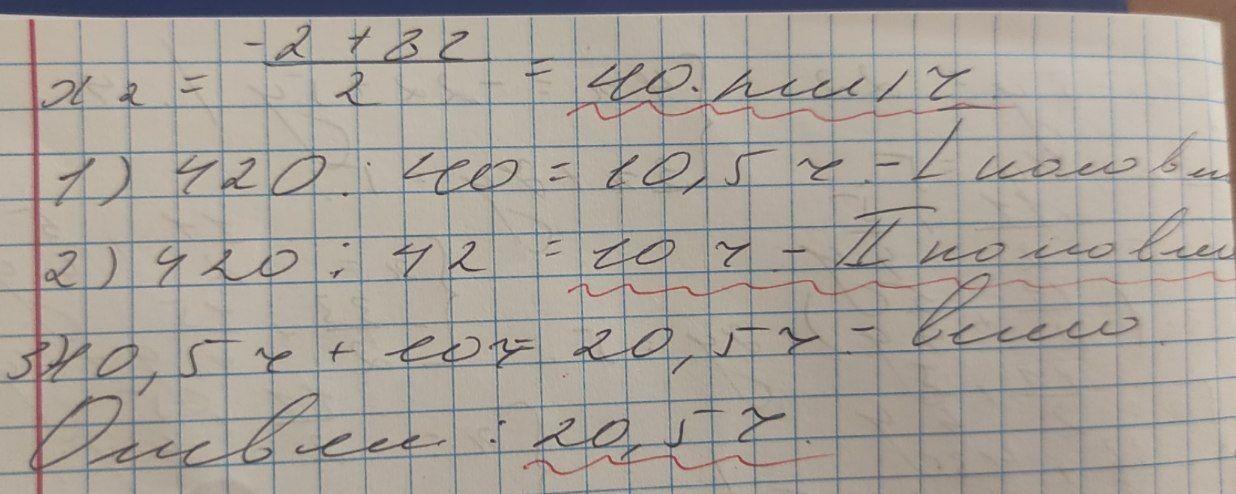 x₂ = (-2 + 82)/2 = 40. км/ч
1) 420 : 40 = 10,5 ч - I полови
2) 420 : 42 = 10 ч - II полови
3) 10,5 ч + 10 ч = 20,5 ч - всего
Ответ : 20,5 ч.